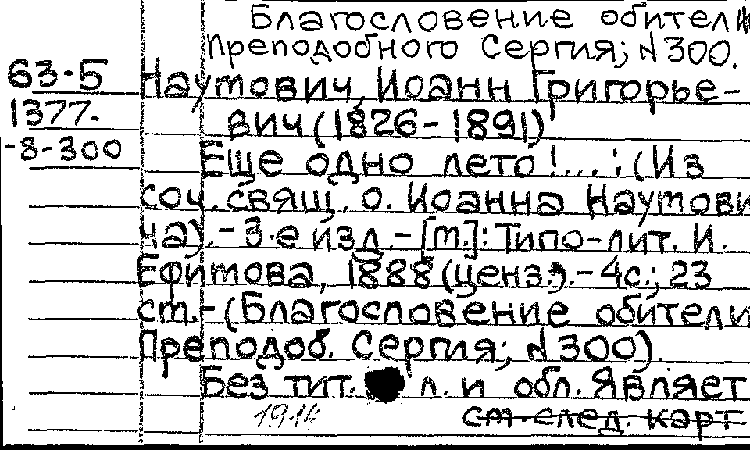 Благословение обители
Преподобного Сергия; № 300.
63-5
1377-
-8-300
Наумович, Иоанн Григорье-
вич (1826-1891)
Еще одно лето!...: (Из
соч. свящ. о. Иоанна Наумови
ча).- 3-е изд.-[М.]: Типо-лит. И.
Ефимова, 1888 (ценз.).- 4с.; 23
см.-(Благословение обители
Преподоб. Сергия; № 300).
Без тит. л. и обл. Является
см. след. карт